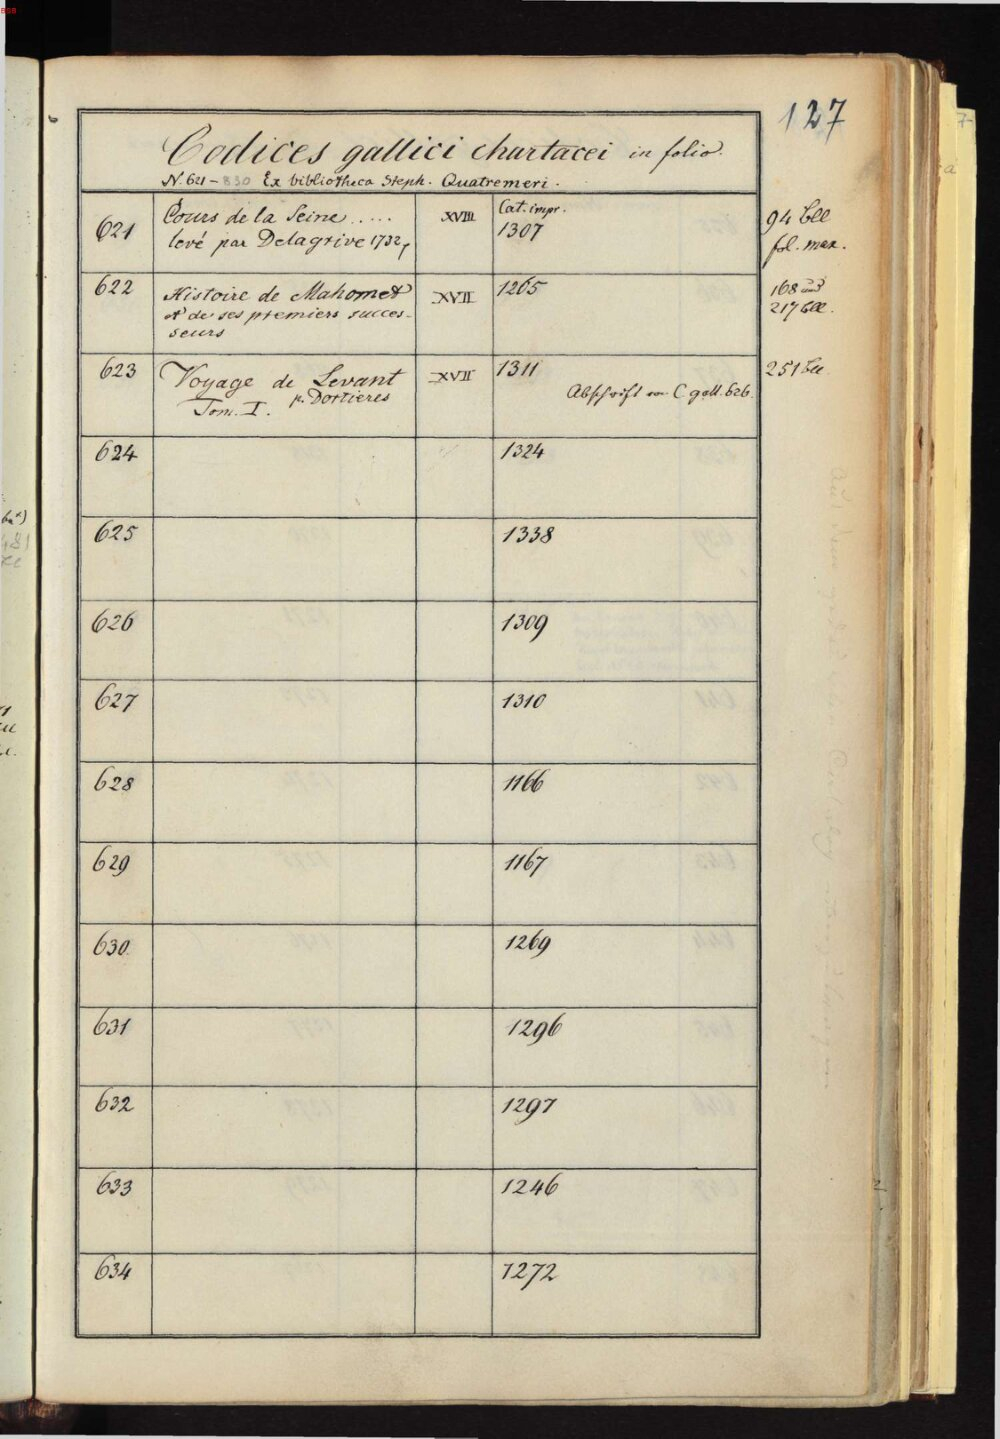 127
Codices gallici chartacei in folio.
N. 621-830 Ex bibliotheca Steph. Quatremeri.
621 Cours de la Seine ..... XVIII Cat. impr. 94 bll
levé par Delagrive 1732, 1307 fol. max.
622 Histoire de Mahomet XVII 1265 168 und
et de ses premiers succes- 217 bll.
seurs
623 Voyage de Levant XVII 1311 251 bll.
Tom. I. p. Dortieres Abschrift von C. gall. 626.
624 1324
625 1338
626 1309
627 1310
628 1166
629 1167
630. 1269
631 1296
632 1297
633 1246
634 1272